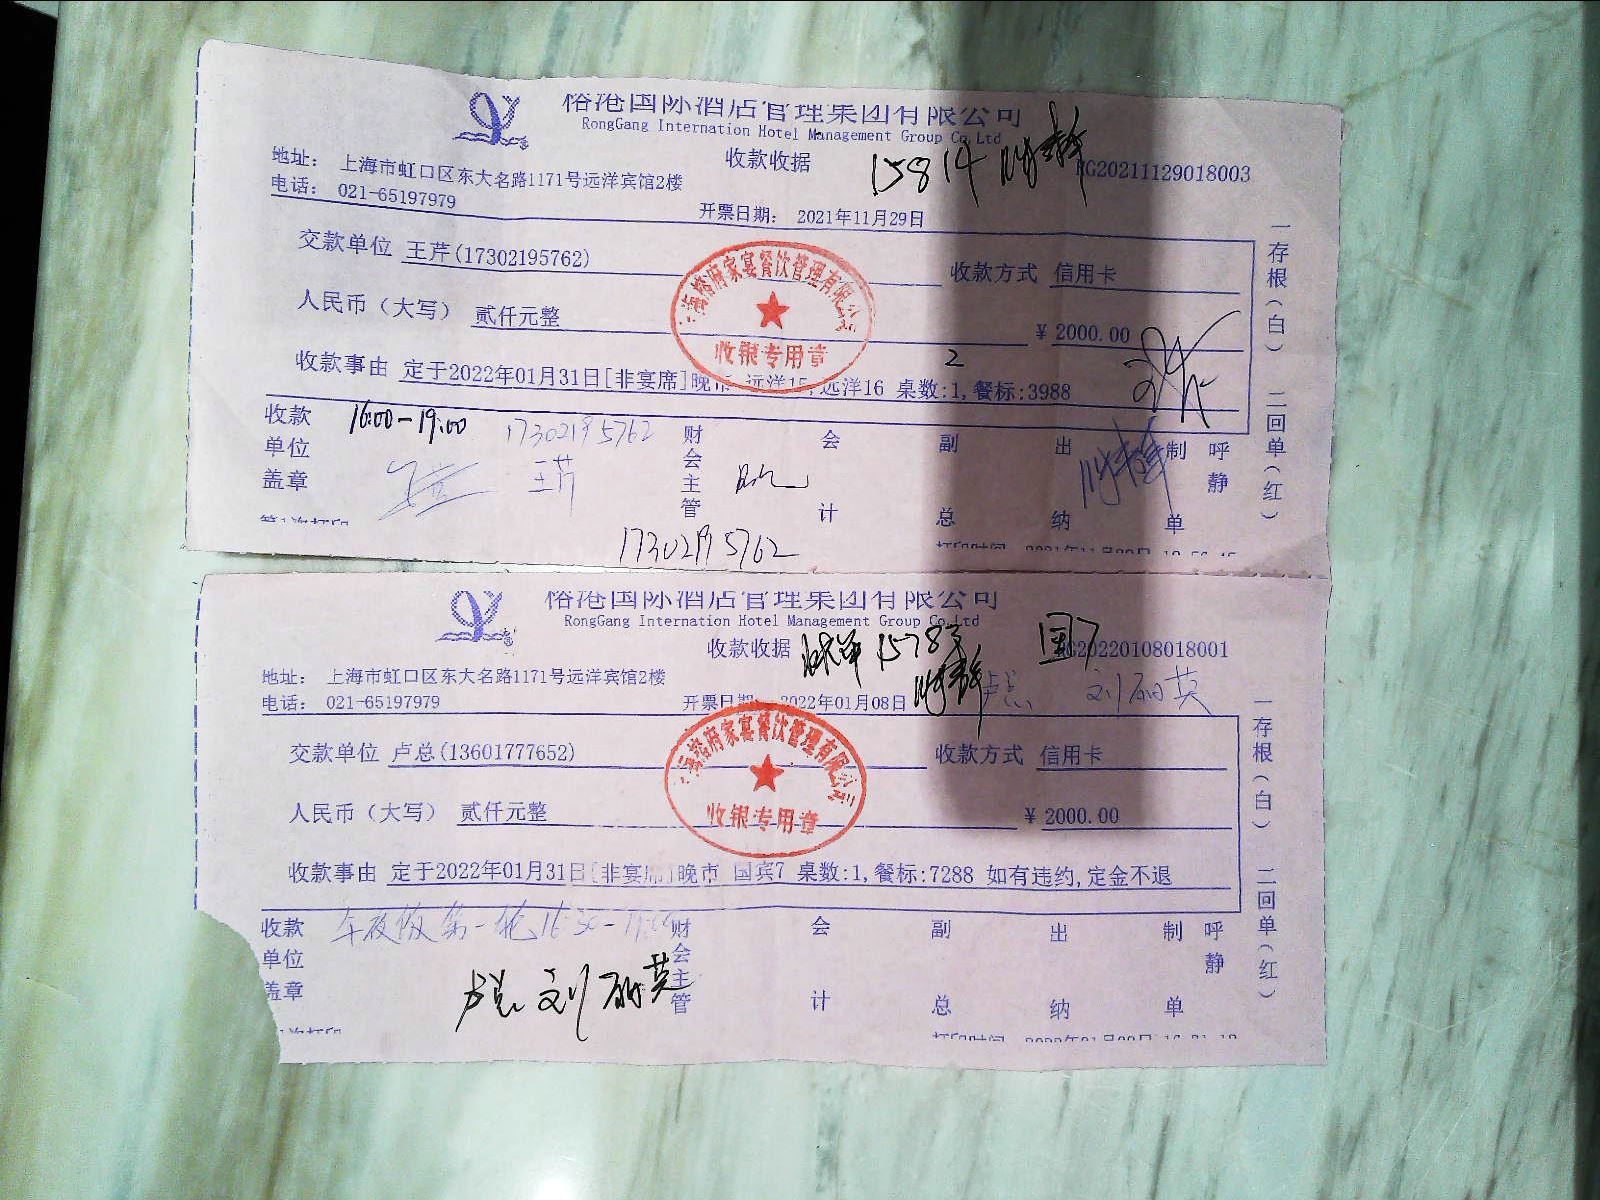 榕港国际酒店管理集团有限公司
RongGang Internation Hotel Management Group Co,Ltd
收款收据 15814 RG20211129018003
地址: 上海市虹口区东大名路1171号远洋宾馆2楼
电话: 021-65197979
开票日期: 2021年11月29日
交款单位 王芹(17302195762) 收款方式 信用卡
人民币(大写) 贰仟元整 ¥ 2000.00
2
收款事由 定于2022年01月31日[非宴席]晚市 远洋15,远洋16 桌数:1,餐标:3988
上海榕府家宴餐饮管理有限公司
收银专用章
收款单位盖章 16:00-19:00 17302195762 王芹
财会主管 会计 副总 出纳 制单 呼静
17302195762
第1次打印
打印时间
一存根(白) 二回单(红)
榕港国际酒店管理集团有限公司
RongGang Internation Hotel Management Group Co,Ltd
收款收据 15783 国7 RG20220108018001
地址: 上海市虹口区东大名路1171号远洋宾馆2楼
电话: 021-65197979
开票日期: 2022年01月08日 卢总 刘丽英
交款单位 卢总(13601777652) 收款方式 信用卡
人民币(大写) 贰仟元整 ¥ 2000.00
收款事由 定于2022年01月31日[非宴席]晚市 国宾7 桌数:1,餐标:7288 如有违约,定金不退
上海榕府家宴餐饮管理有限公司
收银专用章
收款单位盖章 年夜饭 第一轮 16:30-19:00
卢总 刘丽英
财会主管 会计 副总 出纳 制单 呼静
次打印
打印时间
一存根(白) 二回单(红)